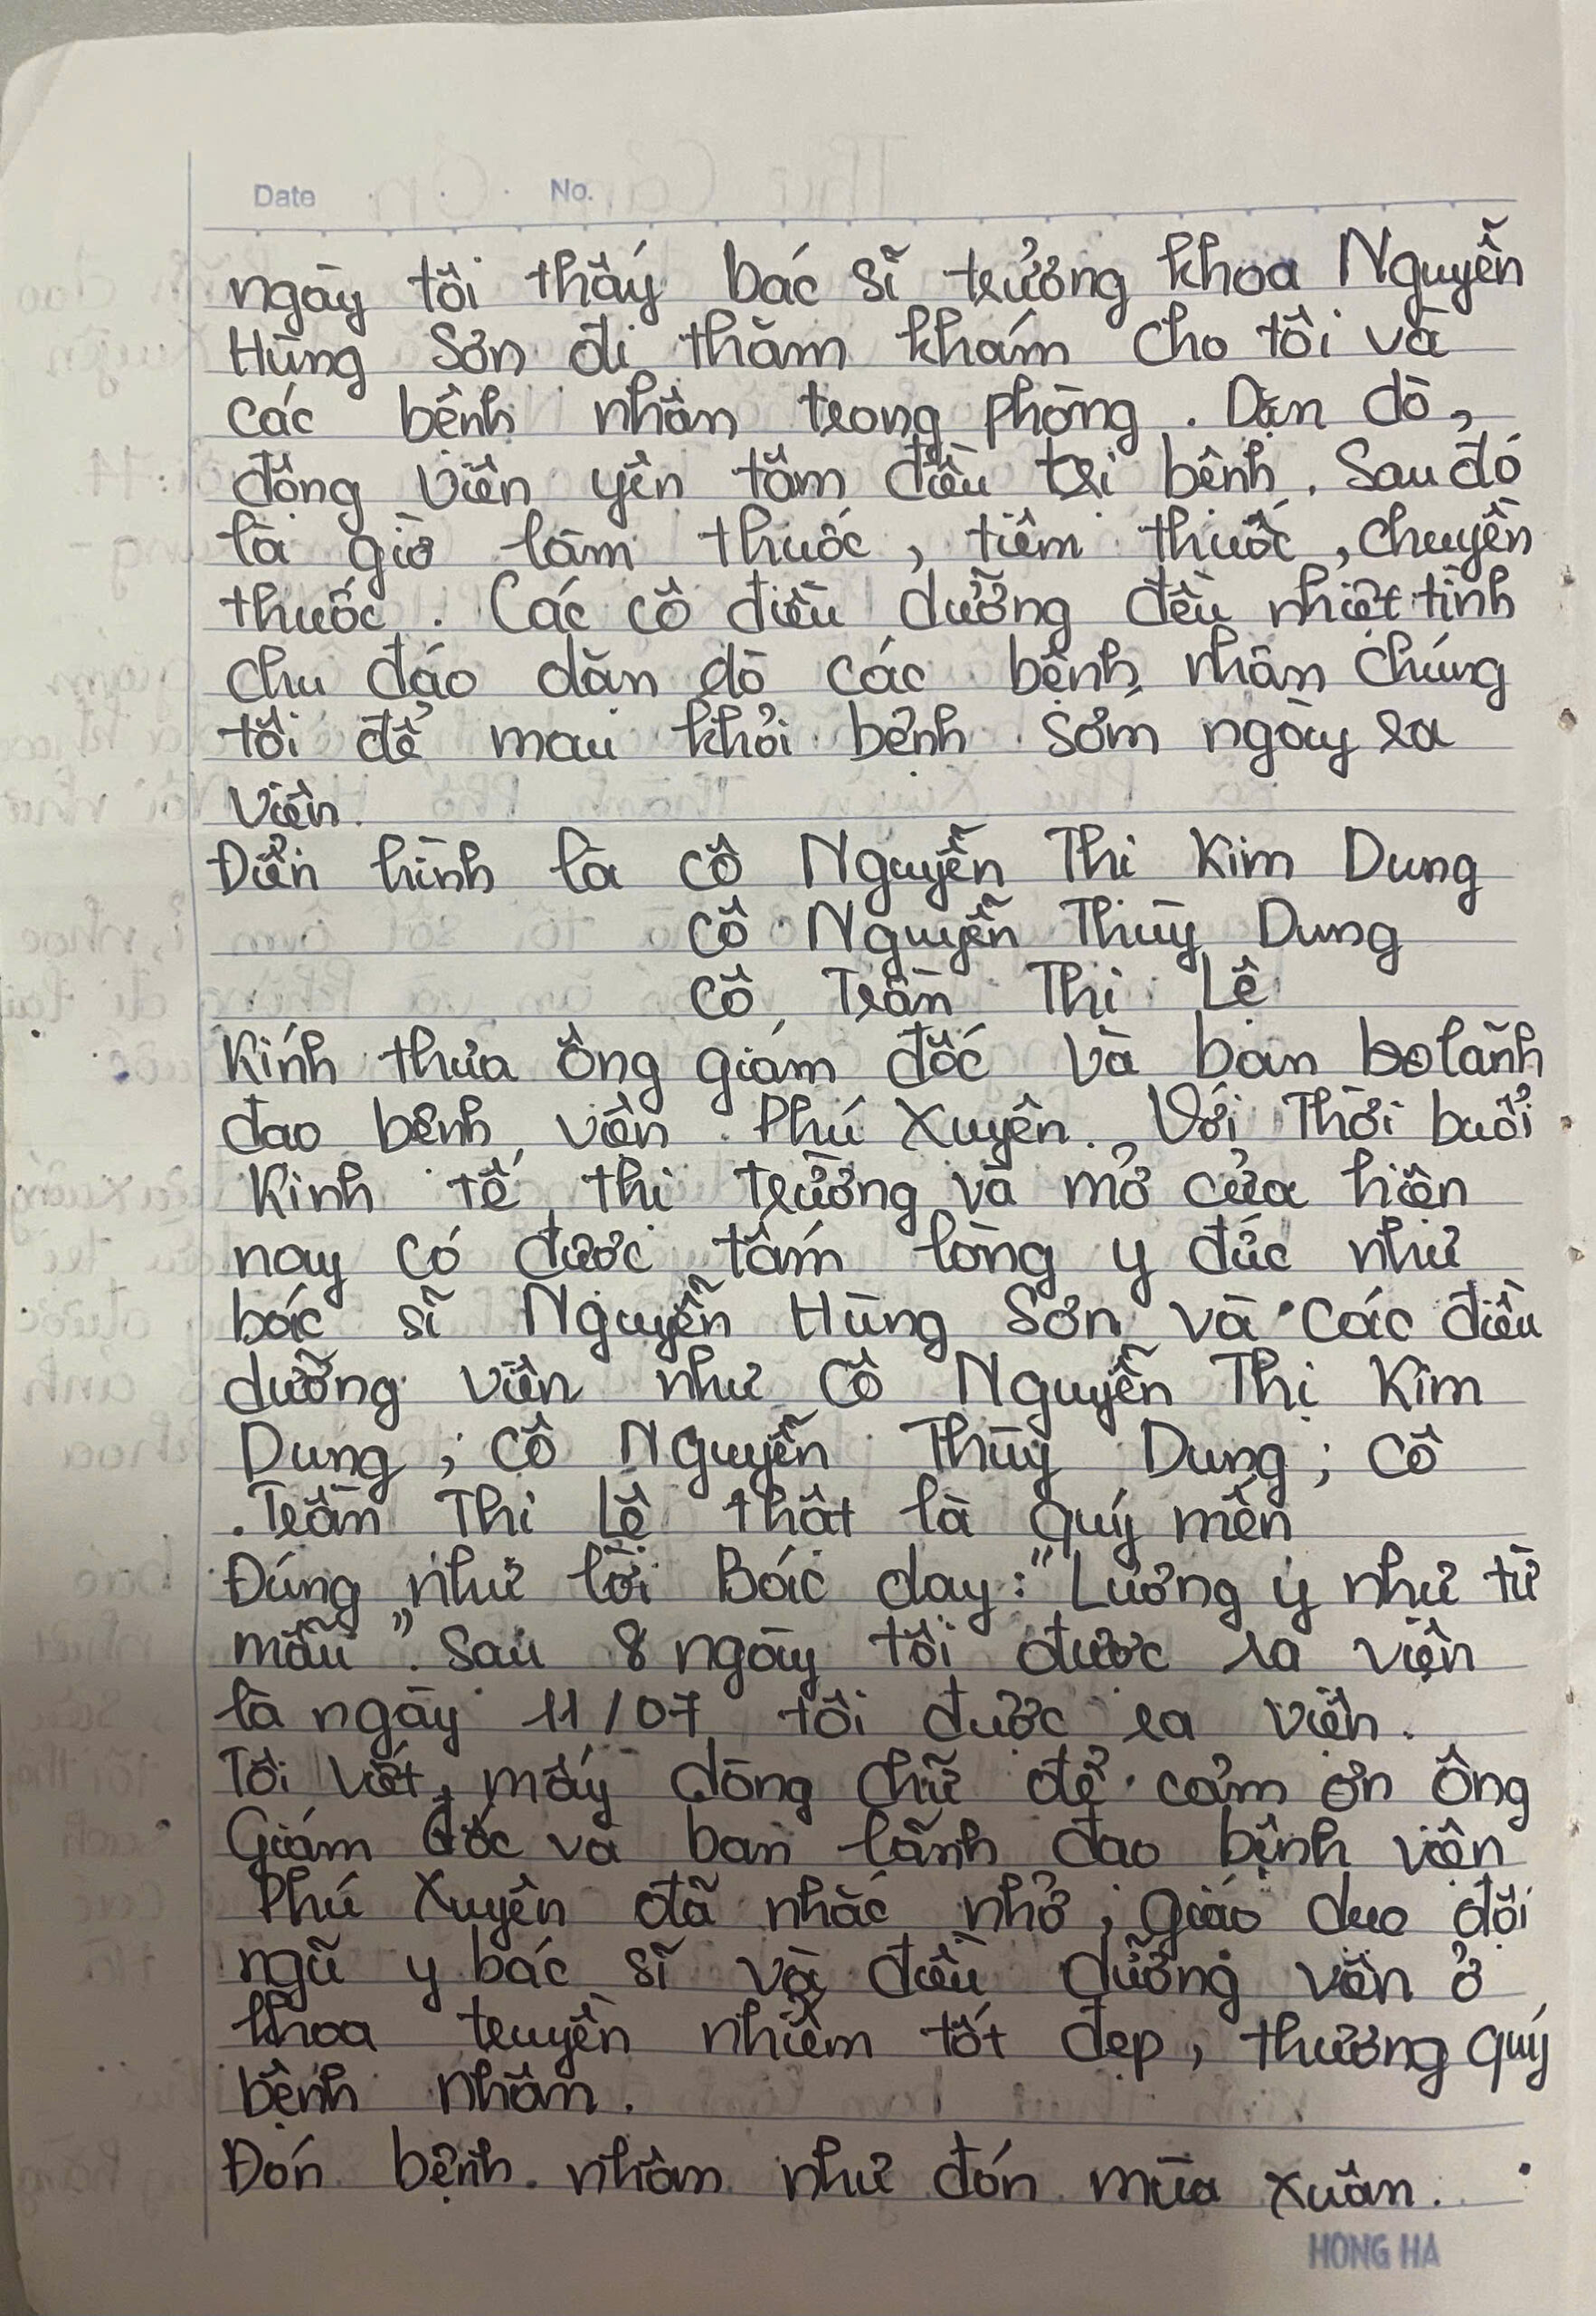 Date No.
ngày tôi thấy bác sĩ trưởng khoa Nguyễn
Hùng Sơn đi thăm khám cho tôi và
các bệnh nhân trong phòng. Dặn dò,
động viên yên tâm điều trị bệnh. Sau đó
là giờ làm thuốc, tiêm thuốc, chuyền
thuốc. Các cô điều dưỡng đều nhiệt tình
chu đáo dặn dò các bệnh nhân chúng
tôi để mau khỏi bệnh sớm ngày ra
viện.
Điển hình là cô Nguyễn Thị Kim Dung
cô Nguyễn Thùy Dung
cô Trần Thị Lệ
Kính thưa ông giám đốc và ban lãnh
đạo bệnh viện Phú Xuyên. Với Thời buổi
Kinh tế thị trường và mở cửa hiện
nay có được tấm lòng y đức như
bác sĩ Nguyễn Hùng Sơn và các điều
dưỡng viên như cô Nguyễn Thị Kim
Dung; cô Nguyễn Thùy Dung; cô
Trần Thị Lệ thật là quý mến
Đúng như lời Bác dạy: "Lương y như từ
mẫu". Sau 8 ngày tôi được ra viện
là ngày 11/07 tôi được ra viện.
Tôi viết mấy dòng chữ để cảm ơn Ông
Giám đốc và ban lãnh đạo bệnh viện
Phú Xuyên đã nhắc nhở, giáo dục đội
ngũ y bác sĩ và điều dưỡng viên ở
khoa truyền nhiễm tốt đẹp, thương quý
bệnh nhân.
Đón bệnh nhân như đón mùa xuân.
HONG HA